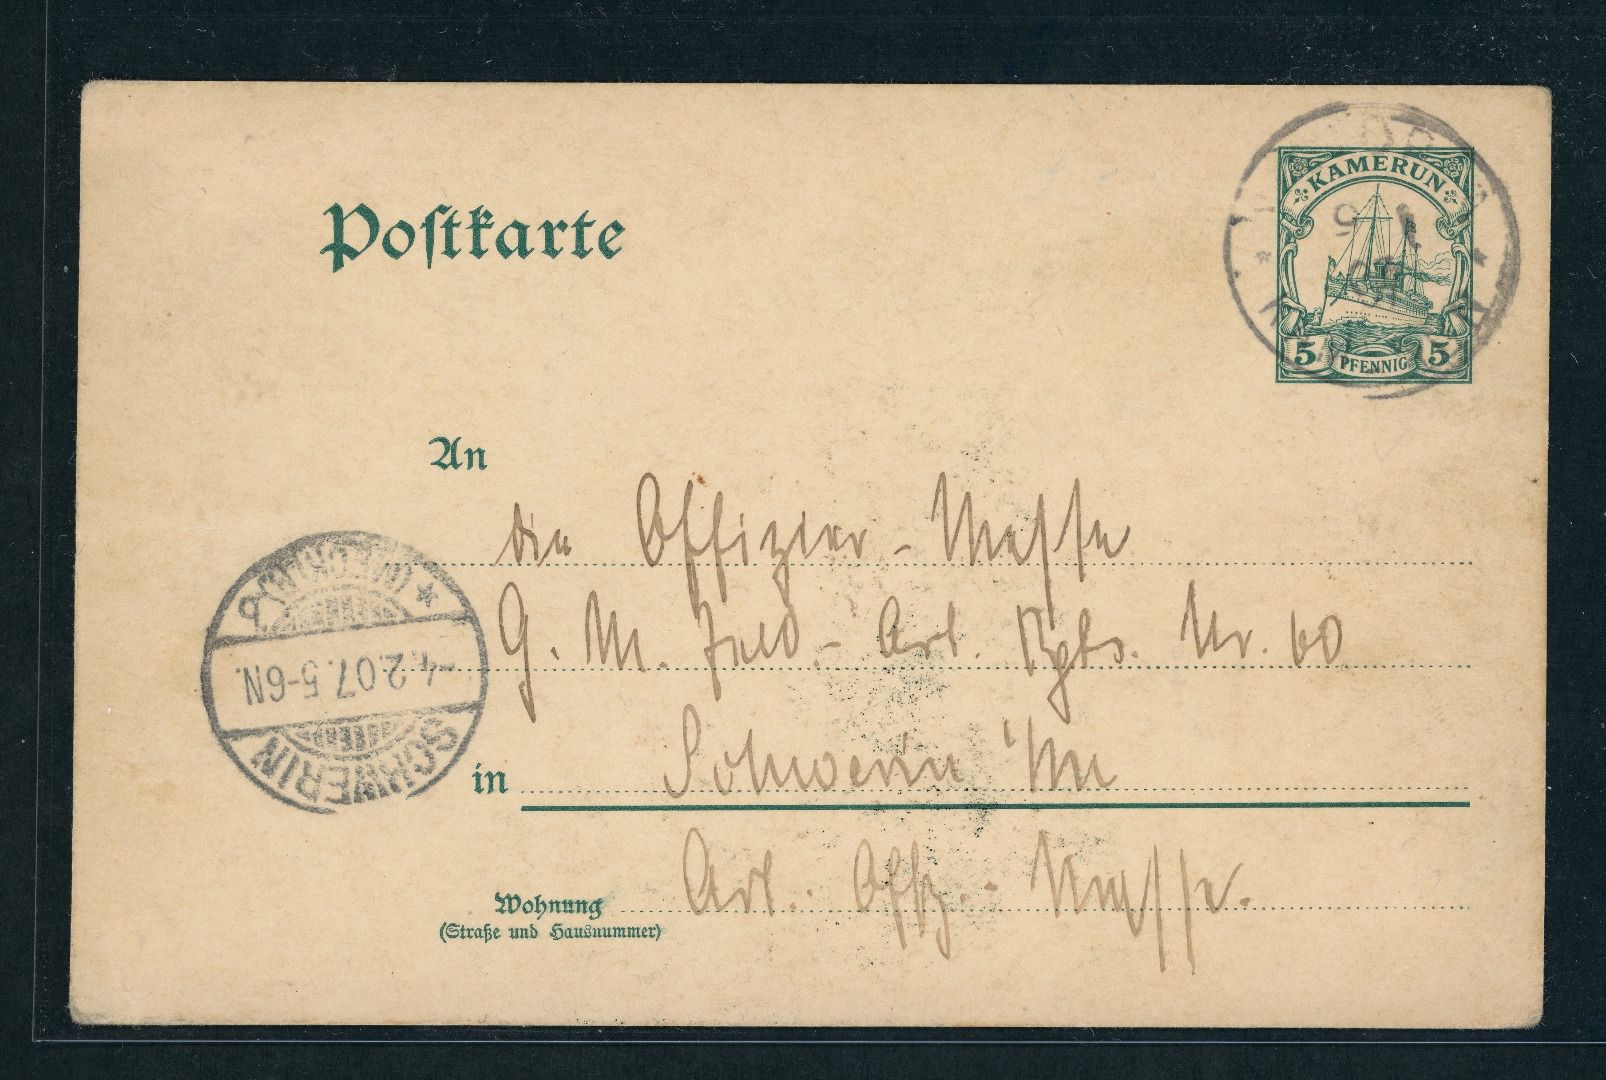 KAMERUN
5 PFENNIG 5
Postkarte
An
die Offizier-Messe
G. M. Feld-Art. Rgts. Nr. 60
in Schwerin i/M
Wohnung Art. Offz.-Messe.
(Straße und Hausnummer)
SCHWERIN
-4.2.07.5-6N.
(MECKLB.)